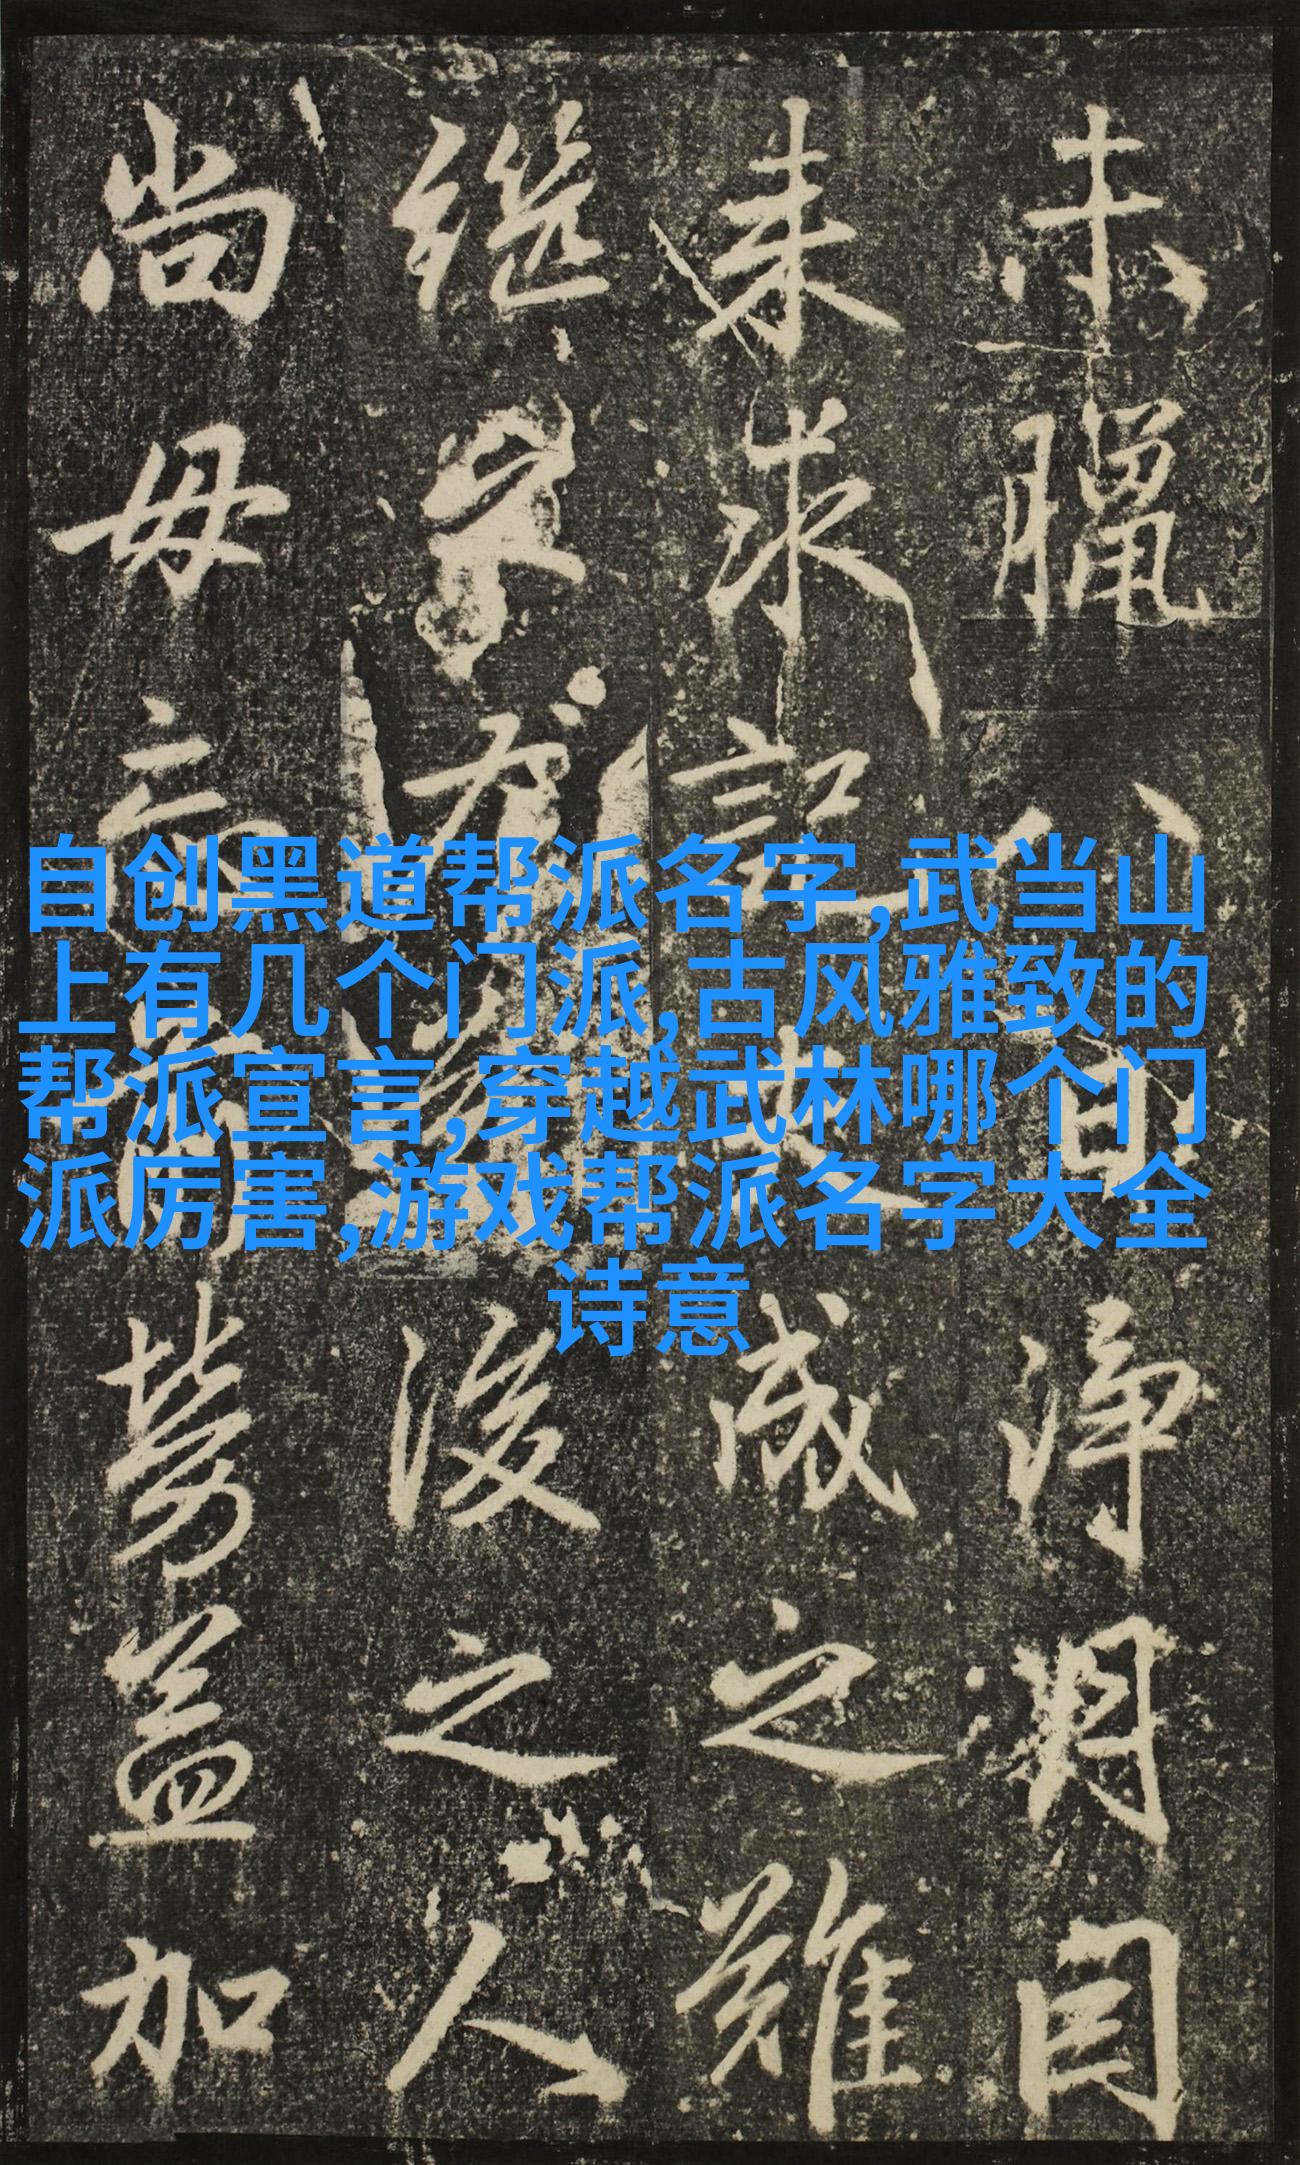 自创黑道帮派名字,武当山
上有几个门派,古风雅致的
帮派宣言,穿越武林哪个门
派厉害,游戏帮派名字大全
诗意
未臘八日淨
来求記成之雖
後之人
尚毋忘勞益加